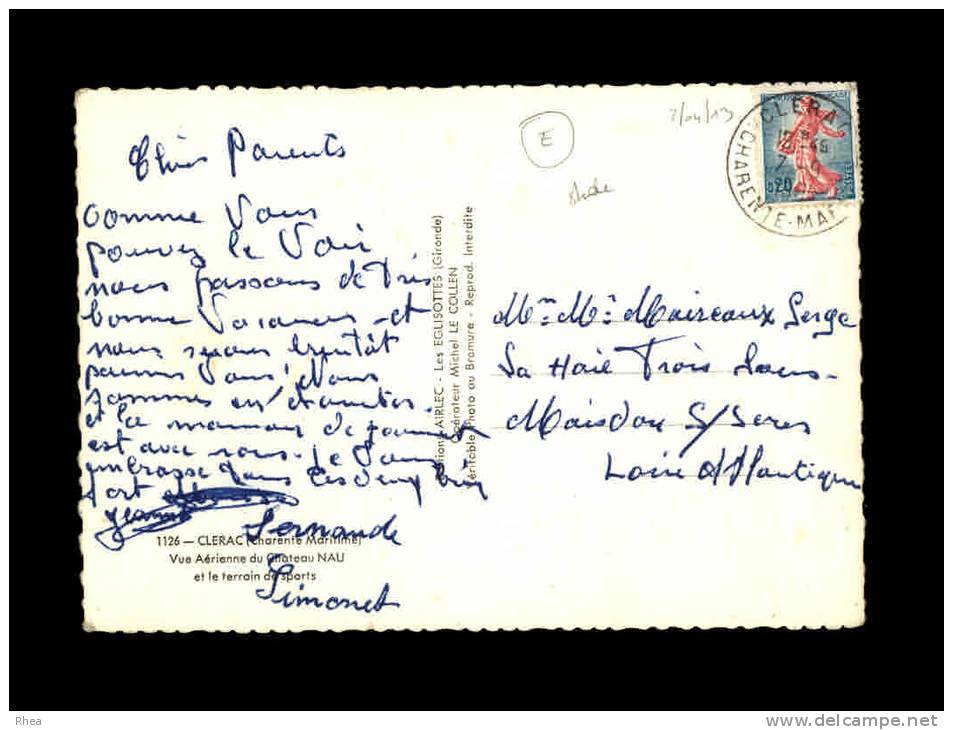 Chers Parents
Comme Vous
pouvez le Voir
nous passons de très
bonne Vacances et
nous serons bientôt
parmis Vous. Nous
sommes en
et la maman de
est avec nous. Je Vous
embrasse tous les deux bien
fort
Jeanne
Fernande
Simonet
1126 — CLERAC (Charente Maritime)
Vue Aérienne du Chateau NAU
et le terrain de sports
AIRLEC - Les EGLISOTTES (Gironde)
Opérateur Michel LE COLLEN
Véritable Photo au Bromure - Reprod. Interdite
E
2/04/13
CLERA
12 45
7
CHARENTE-MAR
0,20
POSTES
Mr Me Moireaux Serge
La Haie Trois Sous
Maisdon S/Sevres
Loire Atlantique
Rhea
www.delcampe.net